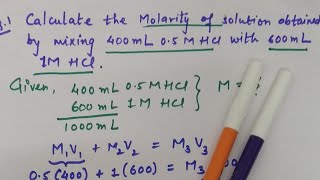 .1 Calculate the Molarity of solution obtained
by mixing 400 mL 0.5 M HCl with 600 mL
1M HCl.
Given, 400 mL 0.5 M HCl } M =
600 mL 1 M HCl
1000 mL
M₁V₁ + M₂V₂ = M₃V₃
0.5(400) + 1(600) = M₃